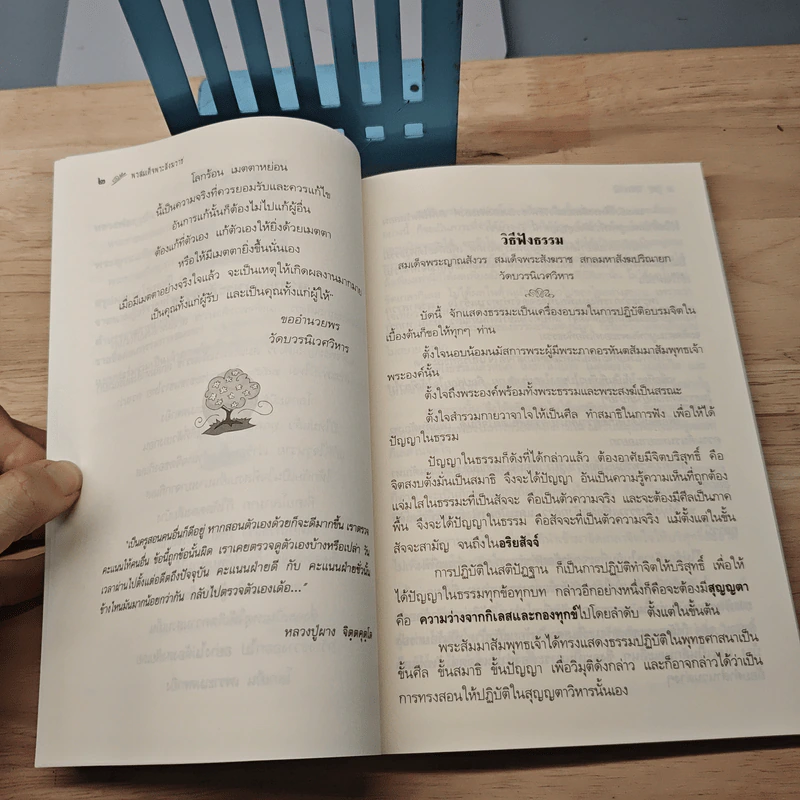 ๒
พรสมเด็จพระสังฆราช
โลกร้อน เมตตาหย่อน
นี้เป็นความจริงที่ควรยอมรับและควรแก้ไข
อันการแก้นั้นก็ต้องไม่ไปแก้ผู้อื่น
ต้องแก้ที่ตัวเอง แก้ตัวเองให้ยิ่งด้วยเมตตา
หรือให้มีเมตตายิ่งขึ้นนั่นเอง
เมื่อมีเมตตาอย่างจริงใจแล้ว จะเป็นเหตุให้เกิดผลงานมากมาย
เป็นคุณทั้งแก่ผู้รับ และเป็นคุณทั้งแก่ผู้ให้"
ขออำนวยพร
วัดบวรนิเวศวิหาร
"เป็นครูสอนคนอื่นก็ดีอยู่ หากสอนตัวเองด้วยก็จะดีมากขึ้น เราตรวจ
คะแนนให้คนอื่น ข้อนี้ถูกข้อนั้นผิด เราเคยตรวจดูตัวเองบ้างหรือเปล่า วัน
เวลาผ่านไปตั้งแต่อดีตถึงปัจจุบัน คะแนนฝ่ายดี กับ คะแนนฝ่ายชั่วนั้น
ข้างไหนมันมากน้อยกว่ากัน กลับไปตรวจตัวเองเด้อ..."
หลวงปู่ผาง จิตฺตคุตฺโต
วิธีฟังธรรม
สมเด็จพระญาณสังวร สมเด็จพระสังฆราช สกลมหาสังฆปริณายก
วัดบวรนิเวศวิหาร
บัดนี้ จักแสดงธรรมะเป็นเครื่องอบรมในการปฏิบัติอบรมจิตใน
เบื้องต้นก็ขอให้ทุกๆ ท่าน
ตั้งใจนอบน้อมนมัสการพระผู้มีพระภาคอรหันตสัมมาสัมพุทธเจ้า
พระองค์นั้น
ตั้งใจถึงพระองค์พร้อมทั้งพระธรรมและพระสงฆ์เป็นสรณะ
ตั้งใจสำรวมกายวาจาใจให้เป็นศีล ทำสมาธิในการฟัง เพื่อให้ได้
ปัญญาในธรรม
ปัญญาในธรรมก็ดังที่ได้กล่าวแล้ว ต้องอาศัยมีจิตบริสุทธิ์ คือ
จิตสงบตั้งมั่นเป็นสมาธิ จึงจะได้ปัญญา อันเป็นความรู้ความเห็นที่ถูกต้อง
แจ่มใสในธรรมะที่เป็นสัจจะ คือเป็นตัวความจริง และจะต้องมีศีลเป็นภาค
พื้น จึงจะได้ปัญญาในธรรม คือสัจจะที่เป็นตัวความจริง แม้ตั้งแต่ในขั้น
สัจจะสามัญ จนถึงในอริยสัจจ์
การปฏิบัติในสติปัฏฐาน ก็เป็นการปฏิบัติทำจิตให้บริสุทธิ์ เพื่อให้
ได้ปัญญาในธรรมทุกข้อทุกบท กล่าวอีกอย่างหนึ่งก็คือจะต้องมีสุญญตา
คือ ความว่างจากกิเลสและกองทุกข์ไปโดยลำดับ ตั้งแต่ในขั้นต้น
พระสัมมาสัมพุทธเจ้าได้ทรงแสดงธรรมปฏิบัติในพุทธศาสนาเป็น
ขั้นศีล ขั้นสมาธิ ขั้นปัญญา เพื่อวิมุติดังกล่าว และก็อาจกล่าวได้ว่าเป็น
การทรงสอนให้ปฏิบัติในสุญญตาวิหารนั้นเอง